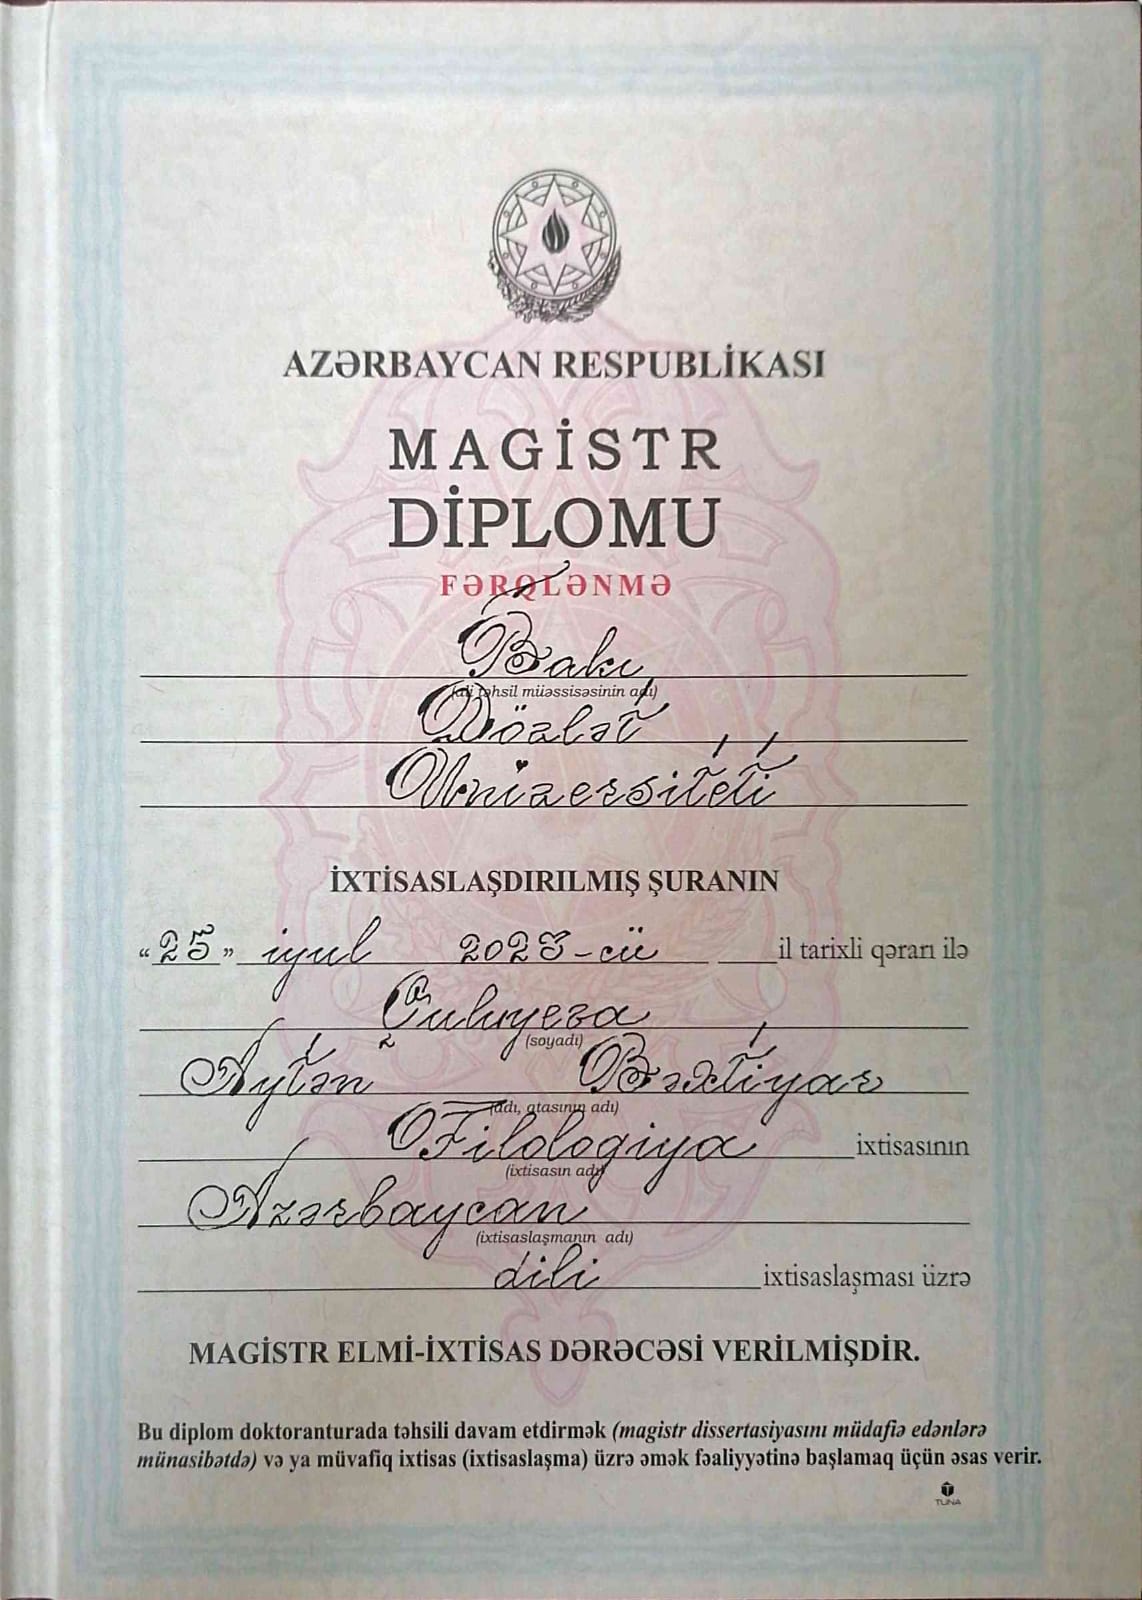 AZƏRBAYCAN RESPUBLİKASI
MAGİSTR
DİPLOMU
FƏRQLƏNMƏ
Bakı
(ali təhsil müəssisəsinin adı)
Dövlət
Universiteti
İXTİSASLAŞDIRILMIŞ ŞURANIN
“25” iyul 2023-cü il tarixli qərarı ilə
Çuhıyeva
(soyadı)
Aytən Bəxtiyar
(adı, atasının adı)
Filologiya ixtisasının
(ixtisasın adı)
Azərbaycan
(ixtisaslaşmanın adı)
dili ixtisaslaşması üzrə
MAGİSTR ELMİ-İXTİSAS DƏRƏCƏSİ VERİLMİŞDİR.
Bu diplom doktoranturada təhsili davam etdirmək (magistr dissertasiyasını müdafiə edənlərə
münasibətdə) və ya müvafiq ixtisas (ixtisaslaşma) üzrə əmək fəaliyyətinə başlamaq üçün əsas verir.
TUNA